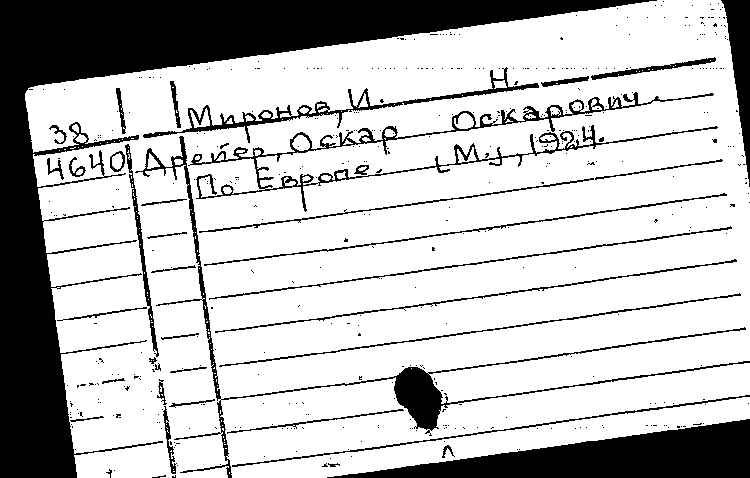 38 Миронов, И. Н.
4640 Дрейер, Оскар Оскарович.
По Европе. [М.], 1924.